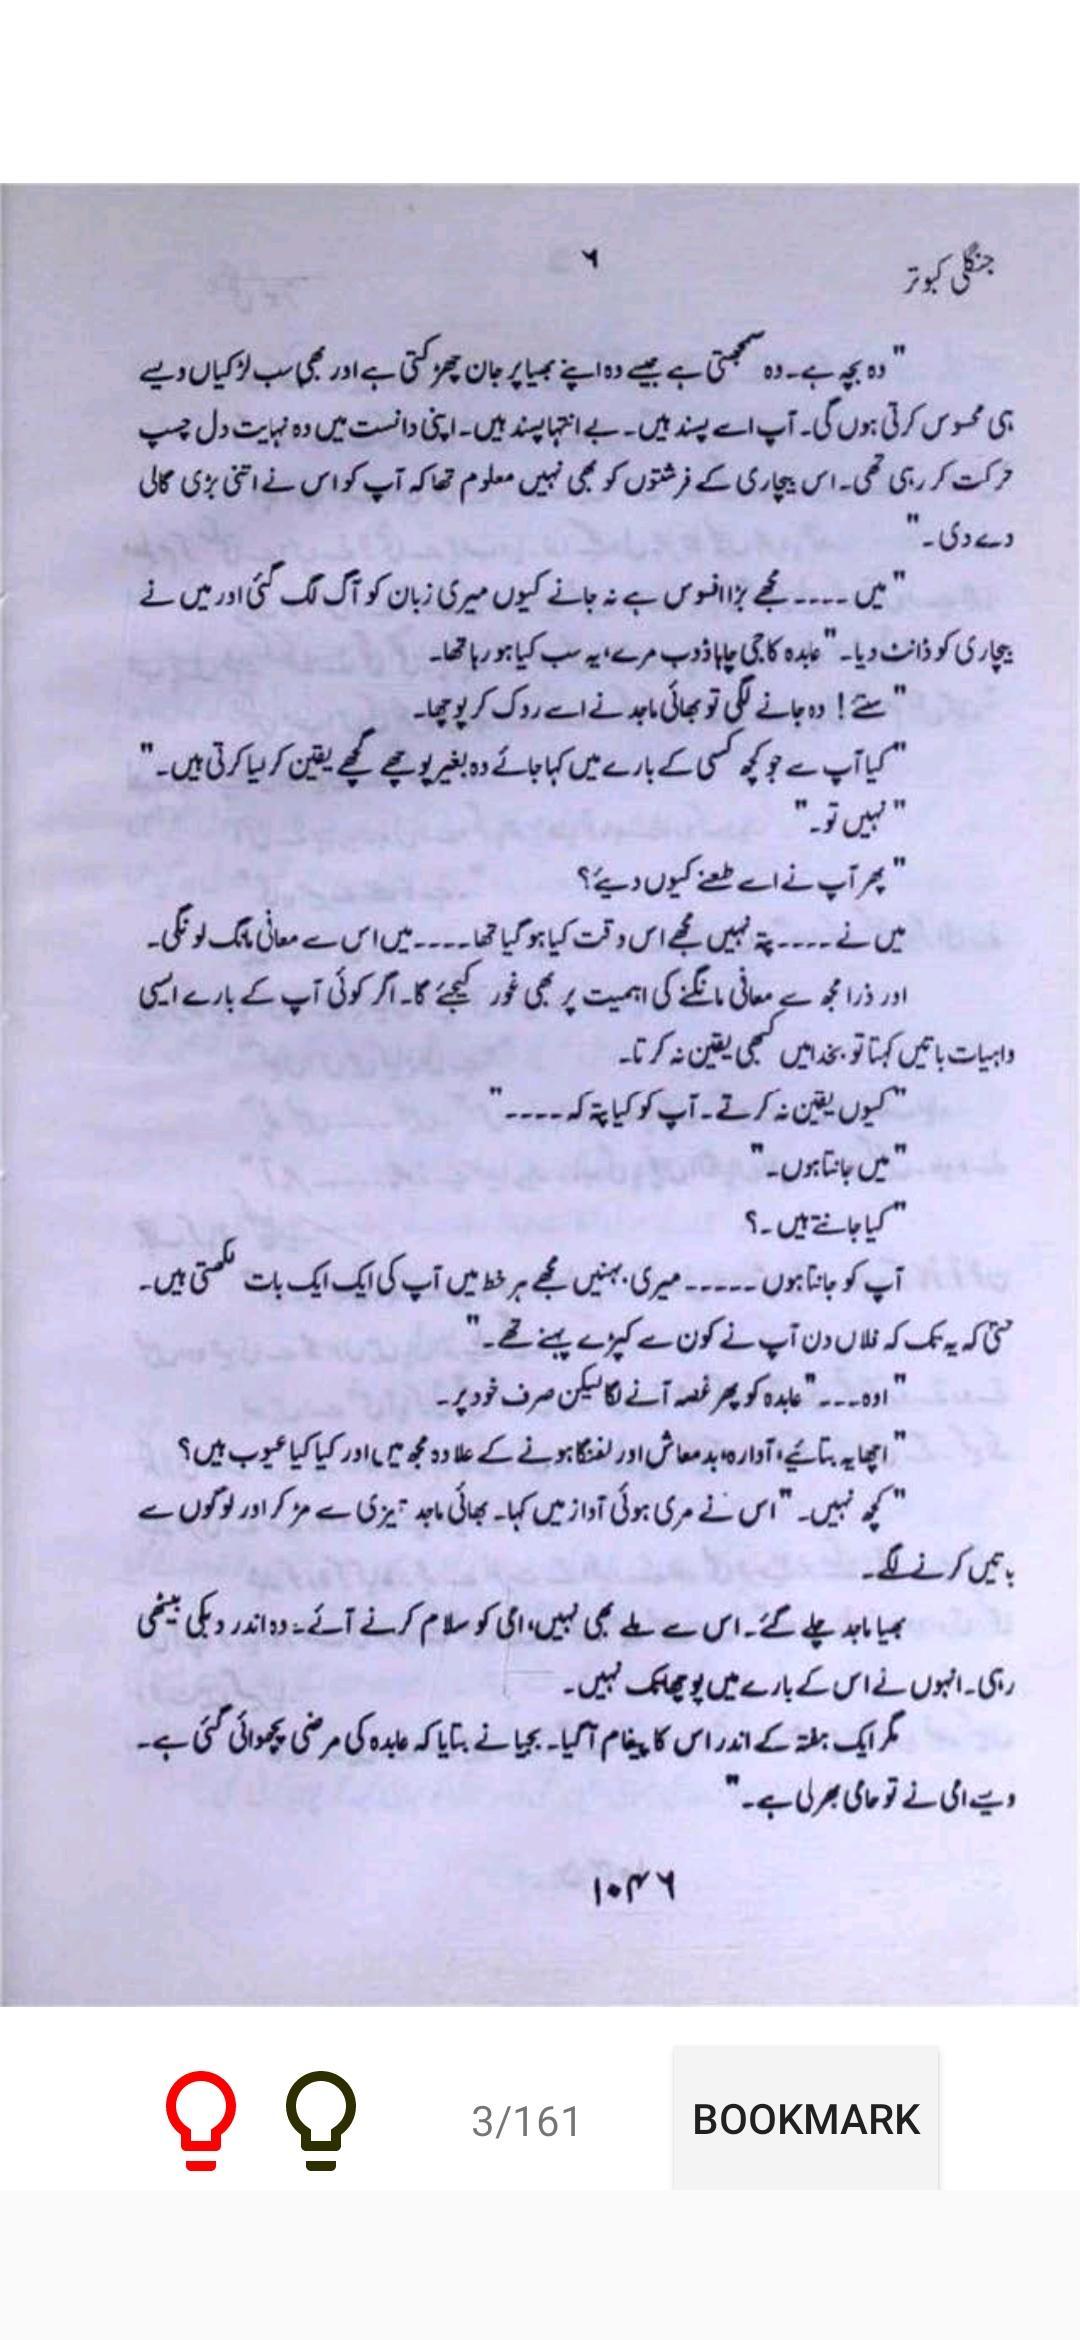 جنگلی کبوتر
۶
"وہ بچہ ہے۔ وہ سمجھتی ہے جیسے وہ اپنے بھیا پر جان چھڑکتی ہے اور بھی سب لڑکیاں ویسے
ہی محسوس کرتی ہوں گی۔ آپ اسے پسند ہیں۔ بے انتہا پسند ہیں۔ اپنی دانست میں وہ نہایت دل چسپ
حرکت کر رہی تھی۔ اس بیچاری کے فرشتوں کو بھی نہیں معلوم تھا کہ آپ کو اس نے اتنی بڑی گالی
دے دی۔"
"میں ۔۔۔۔ مجھے بڑا افسوس ہے نہ جانے کیوں میری زبان کو آگ لگ گئی اور میں نے
بیچاری کو ڈانٹ دیا۔" عابدہ کا جی چاہا ڈوب مرے، یہ سب کیا ہو رہا تھا۔
"سنئے! وہ جانے لگی تو بھائی ماجد نے اسے روک کر پوچھا۔
"کیا آپ سے جو کچھ کسی کے بارے میں کہا جائے وہ بغیر پوچھے گچھے یقین کر لیا کرتی ہیں۔"
"نہیں تو۔"
"پھر آپ نے اسے طعنے کیوں دیئے؟
میں نے ۔۔۔۔ پتہ نہیں مجھے اس وقت کیا ہو گیا تھا ۔۔۔۔ میں اس سے معافی مانگ لونگی۔
اور ذرا مجھ سے معافی مانگنے کی اہمیت پر بھی غور کیجئے گا۔ اگر کوئی آپ کے بارے ایسی
واہیات باتیں کہتا تو بخدا میں کبھی یقین نہ کرتا۔
"کیوں یقین نہ کرتے۔ آپ کو کیا پتہ کہ ۔۔۔۔"
"میں جانتا ہوں۔"
"کیا جانتے ہیں۔؟
آپ کو جانتا ہوں ۔۔۔۔۔ میری بہنیں مجھے ہر خط میں آپ کی ایک ایک بات لکھتی ہیں۔
حتیٰ کہ یہ تک کہ فلاں دن آپ نے کون سے کپڑے پہنے تھے۔"
"اوہ ۔۔۔" عابدہ کو پھر غصہ آنے لگا لیکن صرف خود پر۔
"اچھا یہ بتائیے، آوارہ، بدمعاش اور لفنگا ہونے کے علاوہ مجھ میں اور کیا کیا عیوب ہیں؟
"کچھ نہیں۔" اس نے مری ہوئی آواز میں کہا۔ بھائی ماجد تیزی سے مڑ کر اور لوگوں سے
باتیں کرنے لگے۔
بھیا ماجد چلے گئے۔ اس سے ملے بھی نہیں، امی کو سلام کرنے آئے۔ وہ اندر دبکی بیٹھی
رہی۔ انہوں نے اس کے بارے میں پوچھا تک نہیں۔
مگر ایک ہفتہ کے اندر اس کا پیغام آ گیا۔ بجیا نے بتایا کہ عابدہ کی مرضی پچھوائی گئی ہے۔
ویسے امی نے تو حامی بھر لی ہے۔"
۱۰۴۶
3/161
BOOKMARK